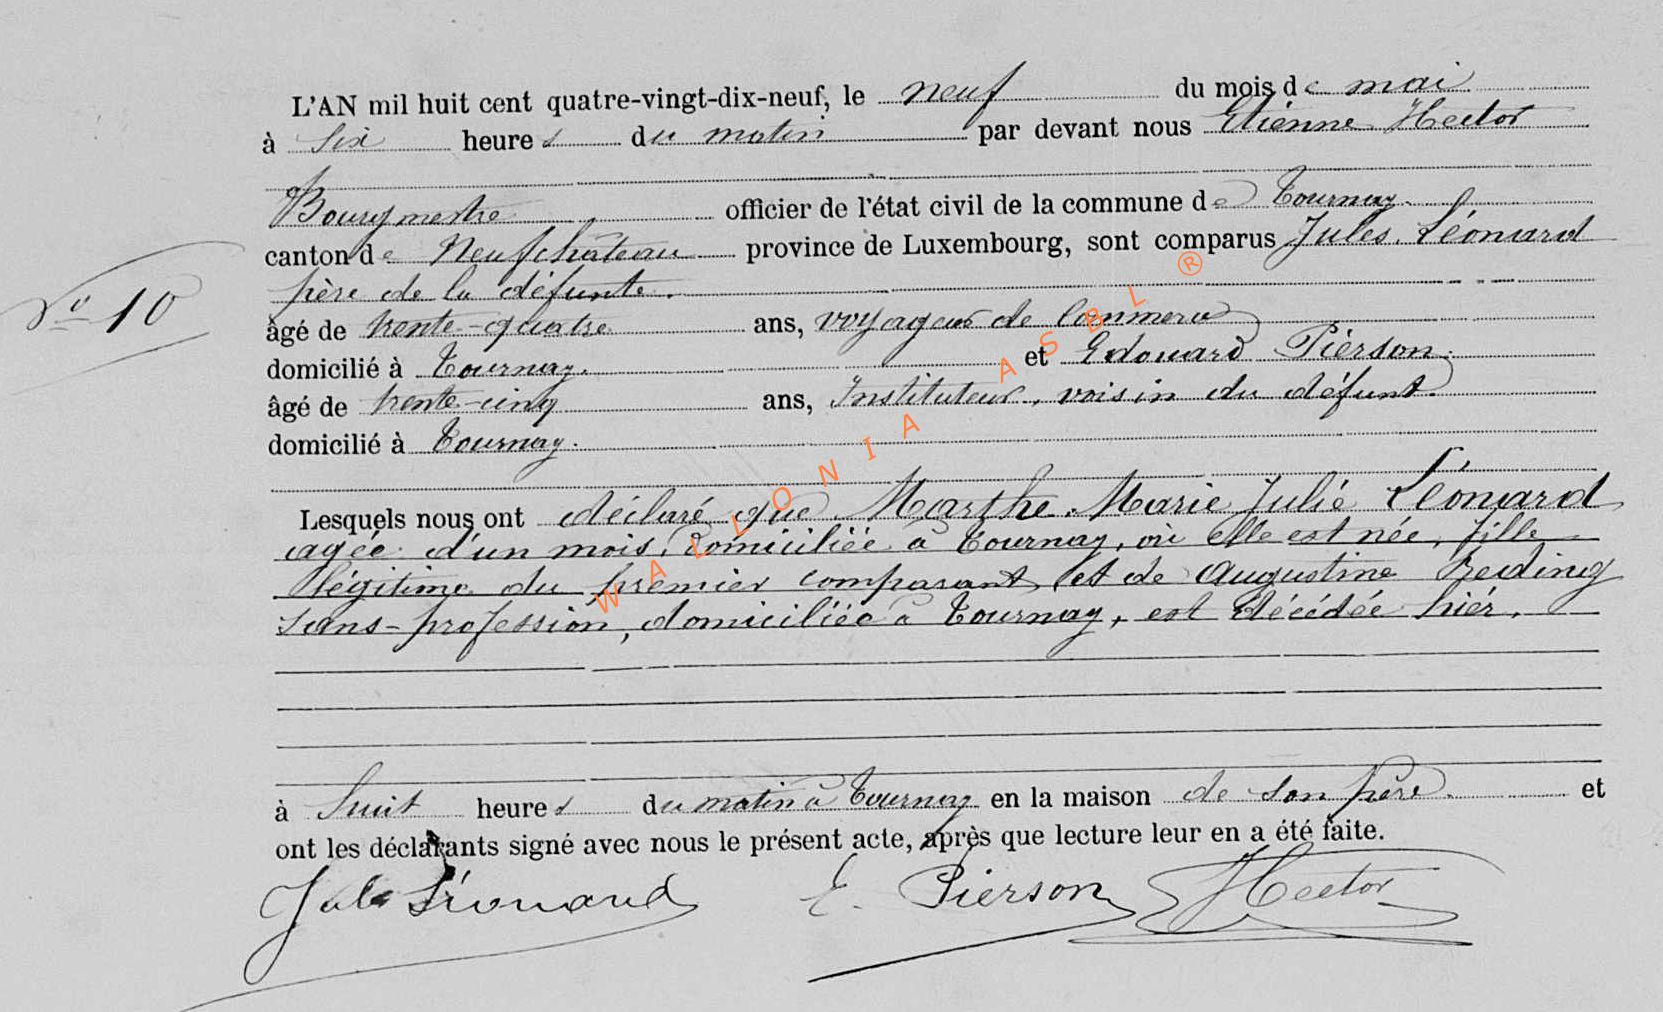 L'AN mil huit cent quatre-vingt-dix-neuf, le neuf du mois de mai
à six heures du matin par devant nous Etienne Hector
Bourgmestre officier de l'état civil de la commune de Tournay.
canton de Neufchâteau province de Luxembourg, sont comparus Jules Léonard
père de la défunte.
âgé de trente-quatre ans, voyageur de commerce
domicilié à Tournay. et Edouard Piérson.
âgé de trente-cinq ans, Instituteur, voisin du défunt.
domicilié à Tournay.
Lesquels nous ont déclaré que Marthe Marie Julie Léonard
agée d'un mois, domiciliée à Tournay, où elle est née, fille
légitime du premier comparant et de Augustine Reding
sans-profession, domiciliée à Tournay, est décédée hier,
à huit heures du matin à Tournay en la maison de son père. et
ont les déclarants signé avec nous le présent acte, après que lecture leur en a été faite.
Jules Léonard E. Pierson Hector
No 10
WALLONIA ASBL ®